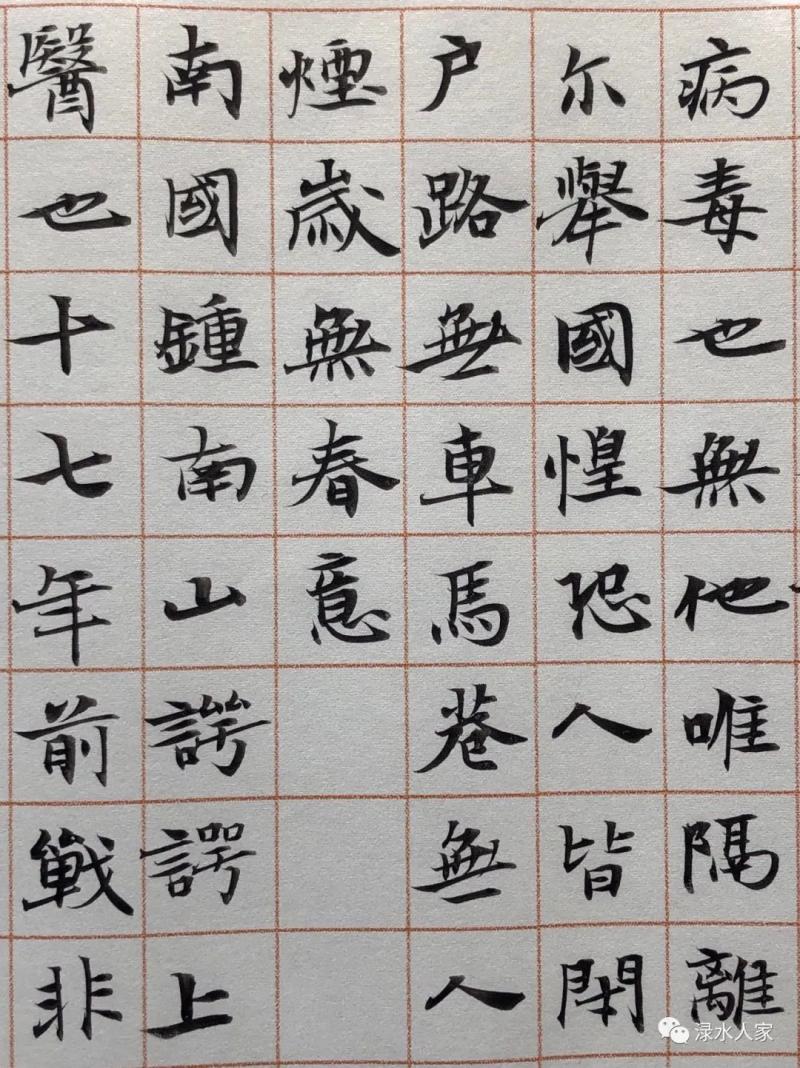 病毒也無他唯隔離
尔舉國惶恐人皆閉
户路無車馬巷無人
煙歲無春意
南國鍾南山諤諤上
醫也十七年前戰非
渌水人家